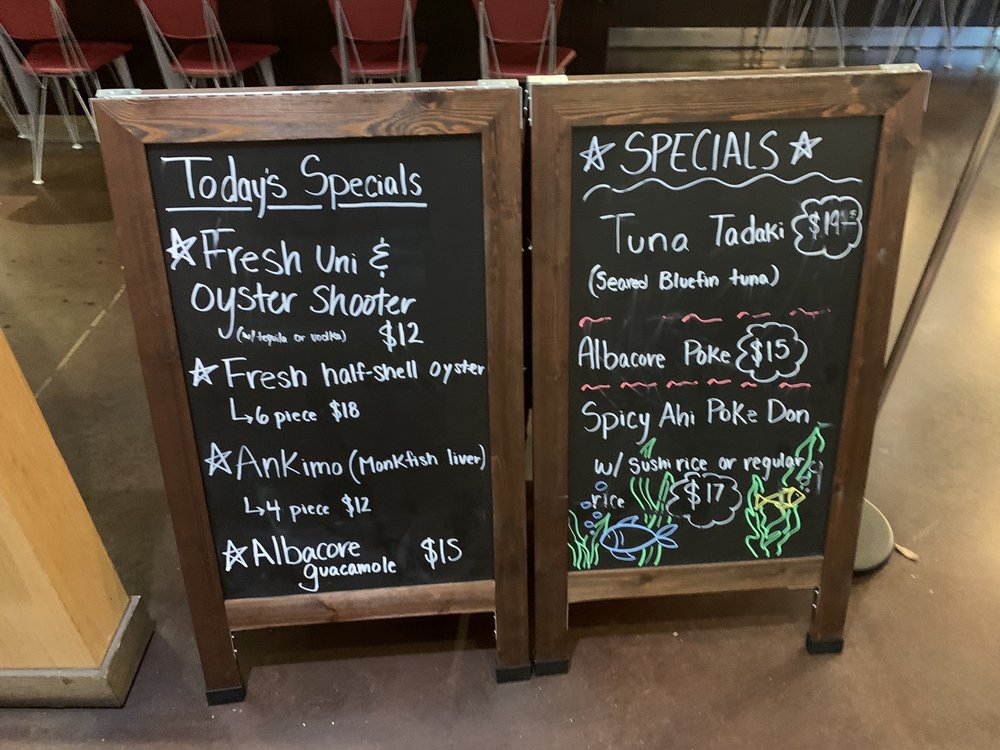 Today's Specials
☆ Fresh Uni &
Oyster Shooter
(w/ tequila or vodka) $12
☆ Fresh half-shell oyster
↳ 6 piece $18
☆ Ankimo (Monkfish liver)
↳ 4 piece $12
☆ Albacore $15
guacamole
☆ SPECIALS ☆
Tuna Tadaki
(Seared Bluefin tuna)
Albacore Poke $15
Spicy Ahi Poke Don
w/ Sushi rice or regular
rice $17